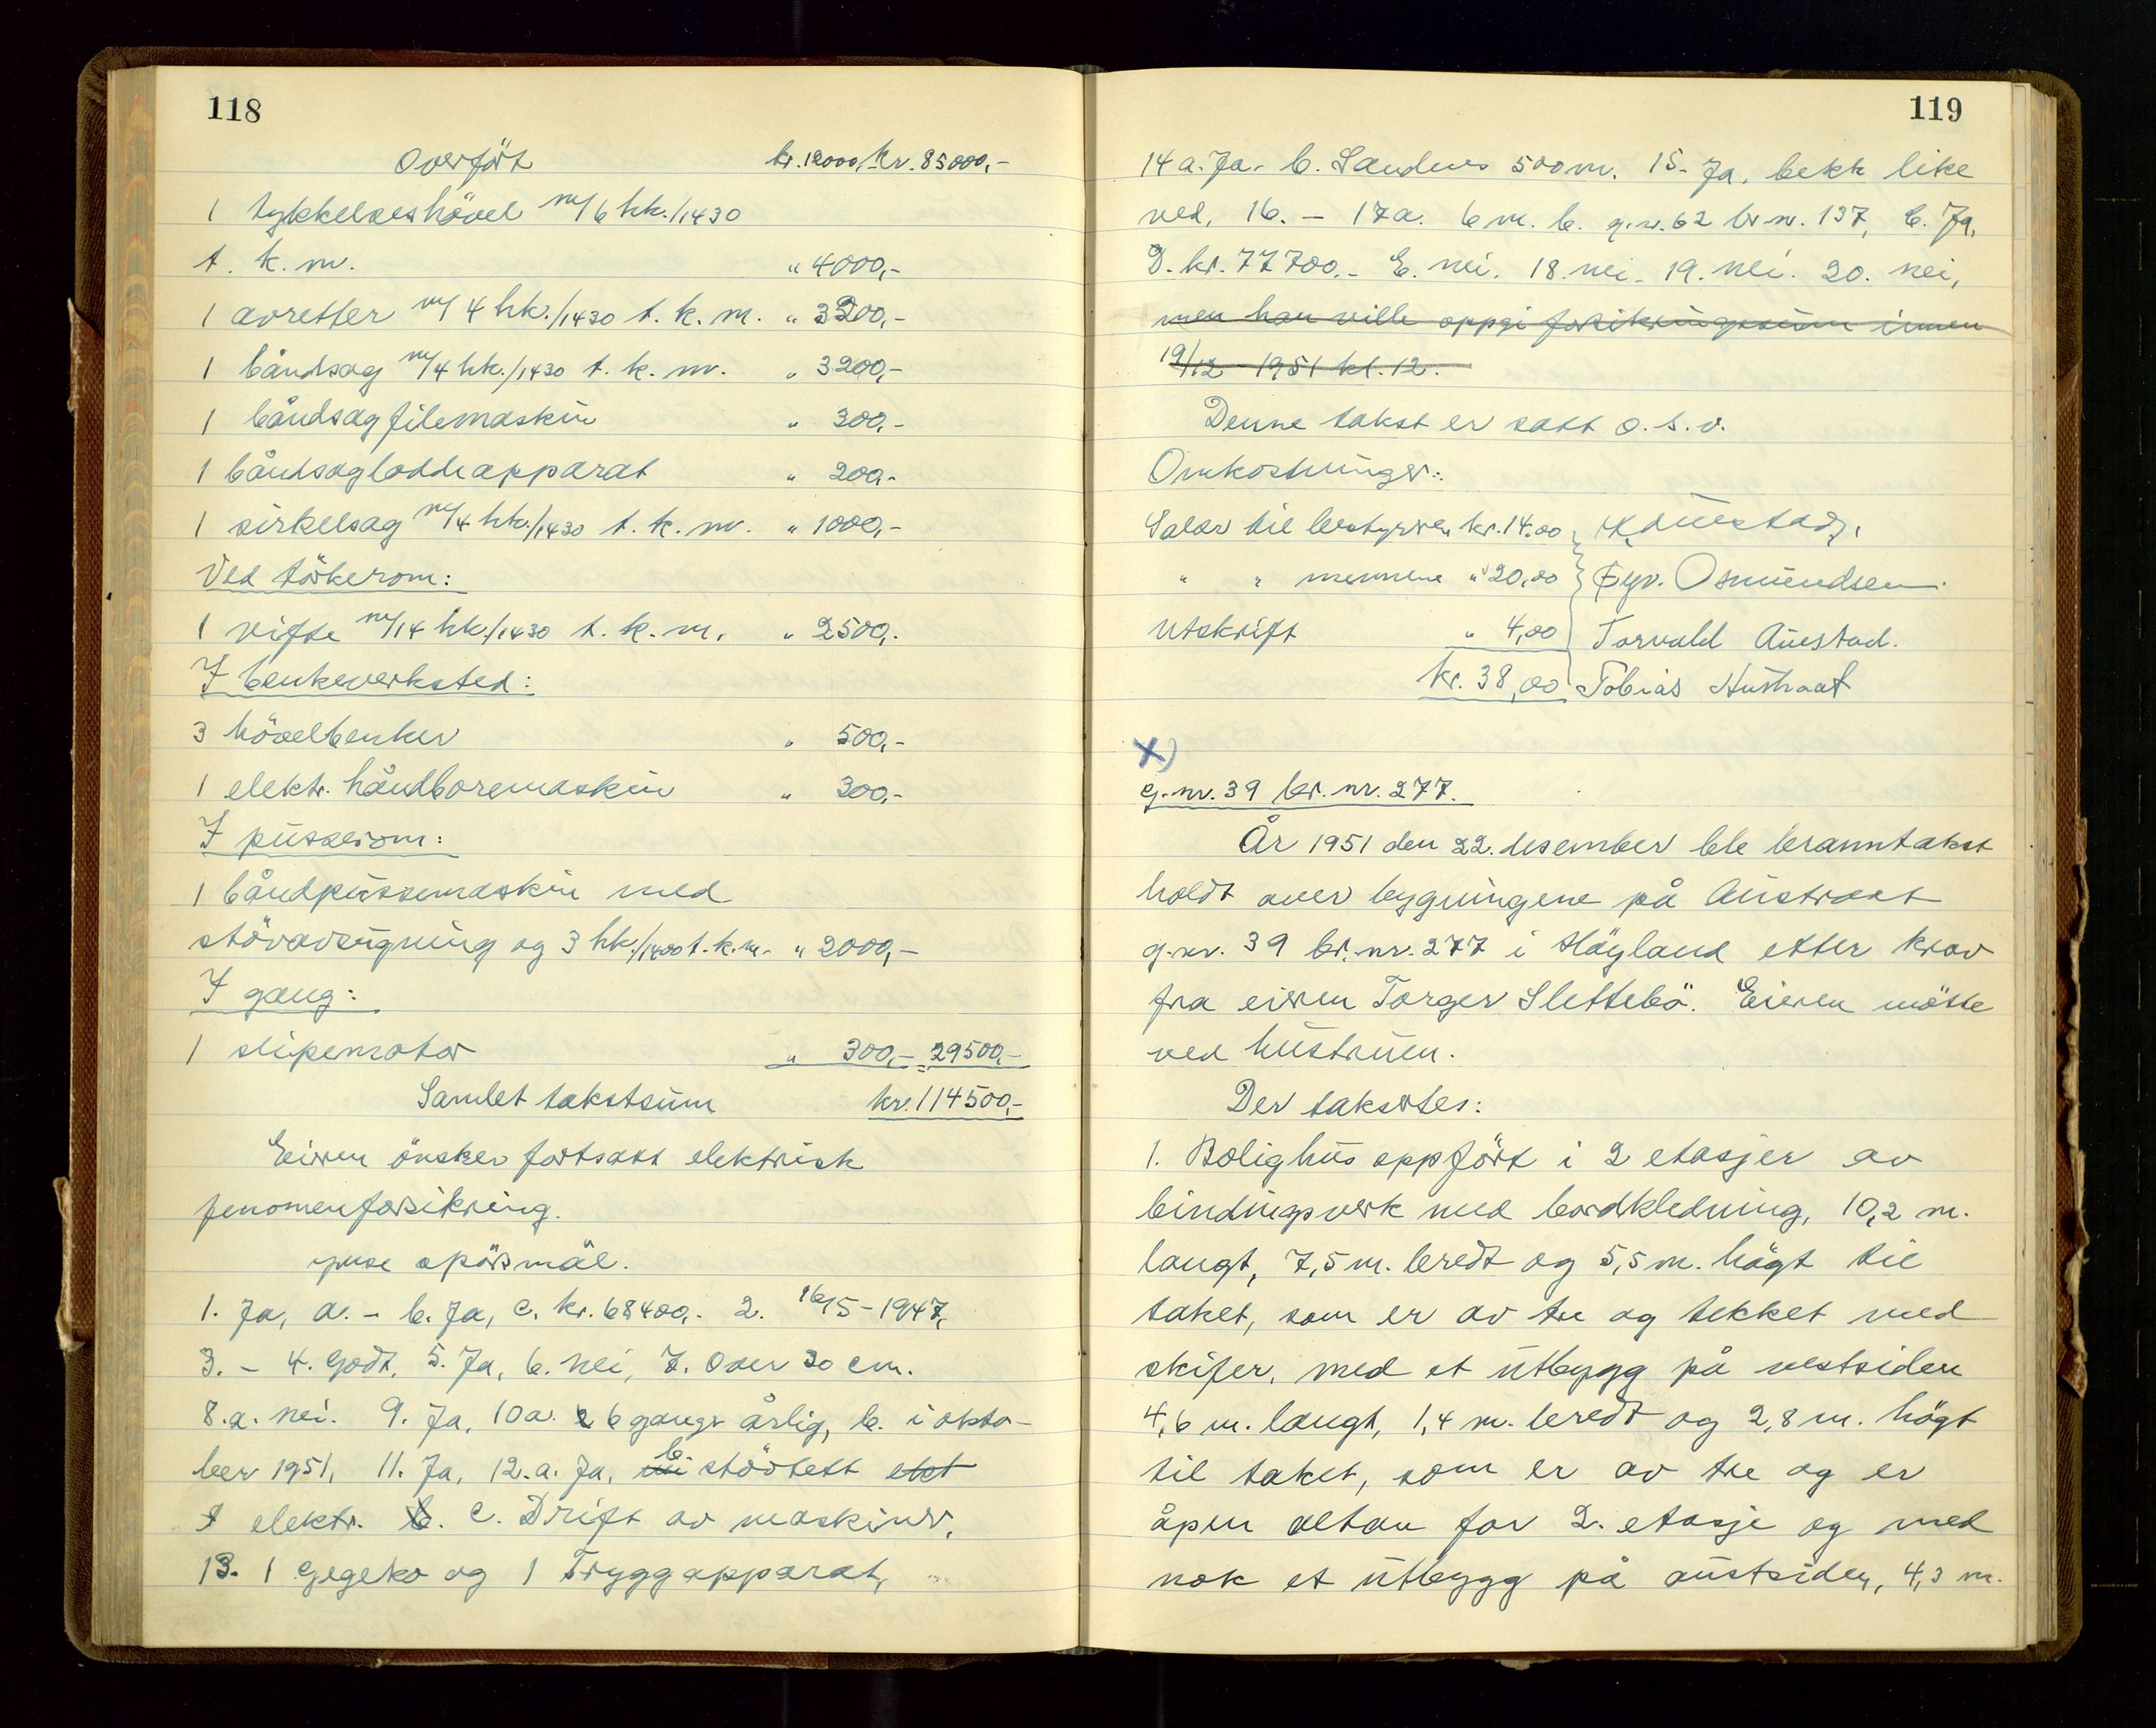 118
Overfört kr. 12000,- kr. 85000,-
1 tykkelseshövel m/6 hk./1430
t. k. m. " 4000,-
1 avretter m/4 hk./1430 t. k. m. " 3200,-
1 båndsag m/4 hk./1430 t. k. m. " 3200,-
1 båndsagfilemaskin " 300,-
1 båndsagloddeapparat " 200,-
1 sirkelsag m/4 hk./1430 t. k. m. " 1000,-
Ved törkerom:
1 vifte m/14 hk./1430 t. k. m. " 2500,-
I benkeverksted:
3 hövelbenker " 500,-
1 elektr. håndboremaskin " 300,-
I pusserom:
1 båndpussemaskin med
stövavsugning og 3 hk./1400 t. k. m. " 2000,-
I gang:
1 slipemotor " 300,- 29500,-
Samlet takstsum kr. 114500,-
Eieren önsker fortsatt elektrisk
fenomenforsikring.
spörsmål.
1. Ja, a. - b. Ja, c. kr. 68400,- 2. 16/5-1947,
3. - 4. Godt, 5. Ja, 6. nei, 7. Over 30 cm.
8. a. nei. 9. Ja, 10 a. 6 gange årlig, b. i okto-
ber 1951, 11. Ja, 12. a. Ja, b. stövtett
elektr. c. Drift av maskiner,
13. 1 Gegeko og 1 Tryggapparat,
119
14 a. Ja. b. Sandnes 500 m. 15. Ja, bekk like
ved, 16. - 17 a. 6 m. b. g.nr. 62 br.nr. 137, C. Ja,
D. kr. 77700.- E. nei. 18. nei. 19. nei. 20. nei,
men han ville oppgi forsikringssum innen
19/12 1951 kl. 12.
Denne takst er satt o. s. v.
Omkostninger:
Salær til bestyreren kr. 14.00
" " mennene " 20,00 Osmundsen.
Utskrift " 4,00 Torvald Austad.
kr. 38,00 Tobias
X)
g.nr. 39 br. nr. 277.
År 1951 den 22. desember ble branntakst
holdt over bygningene på Austraat
g.nr. 39 br. nr. 277 i Höyland etter krav
fra eieren Torger Slettebö. Eieren mötte
ved hustruen.
Der takseres:
1. Bolighus oppfört i 2 etasjer av
bindingsverk med bordkledning, 10,2 m.
langt, 7,5 m. bredt og 5,5 m. högt til
taket, som er av tre og tekket med
skifer, med et utbygg på vestsiden
4,6 m. langt, 1,4 m. bredt og 2,8 m. högt
til taket, som er av tre og er
åpen altan for 2. etasje og med
nok et utbygg på austsiden, 4,3 m.